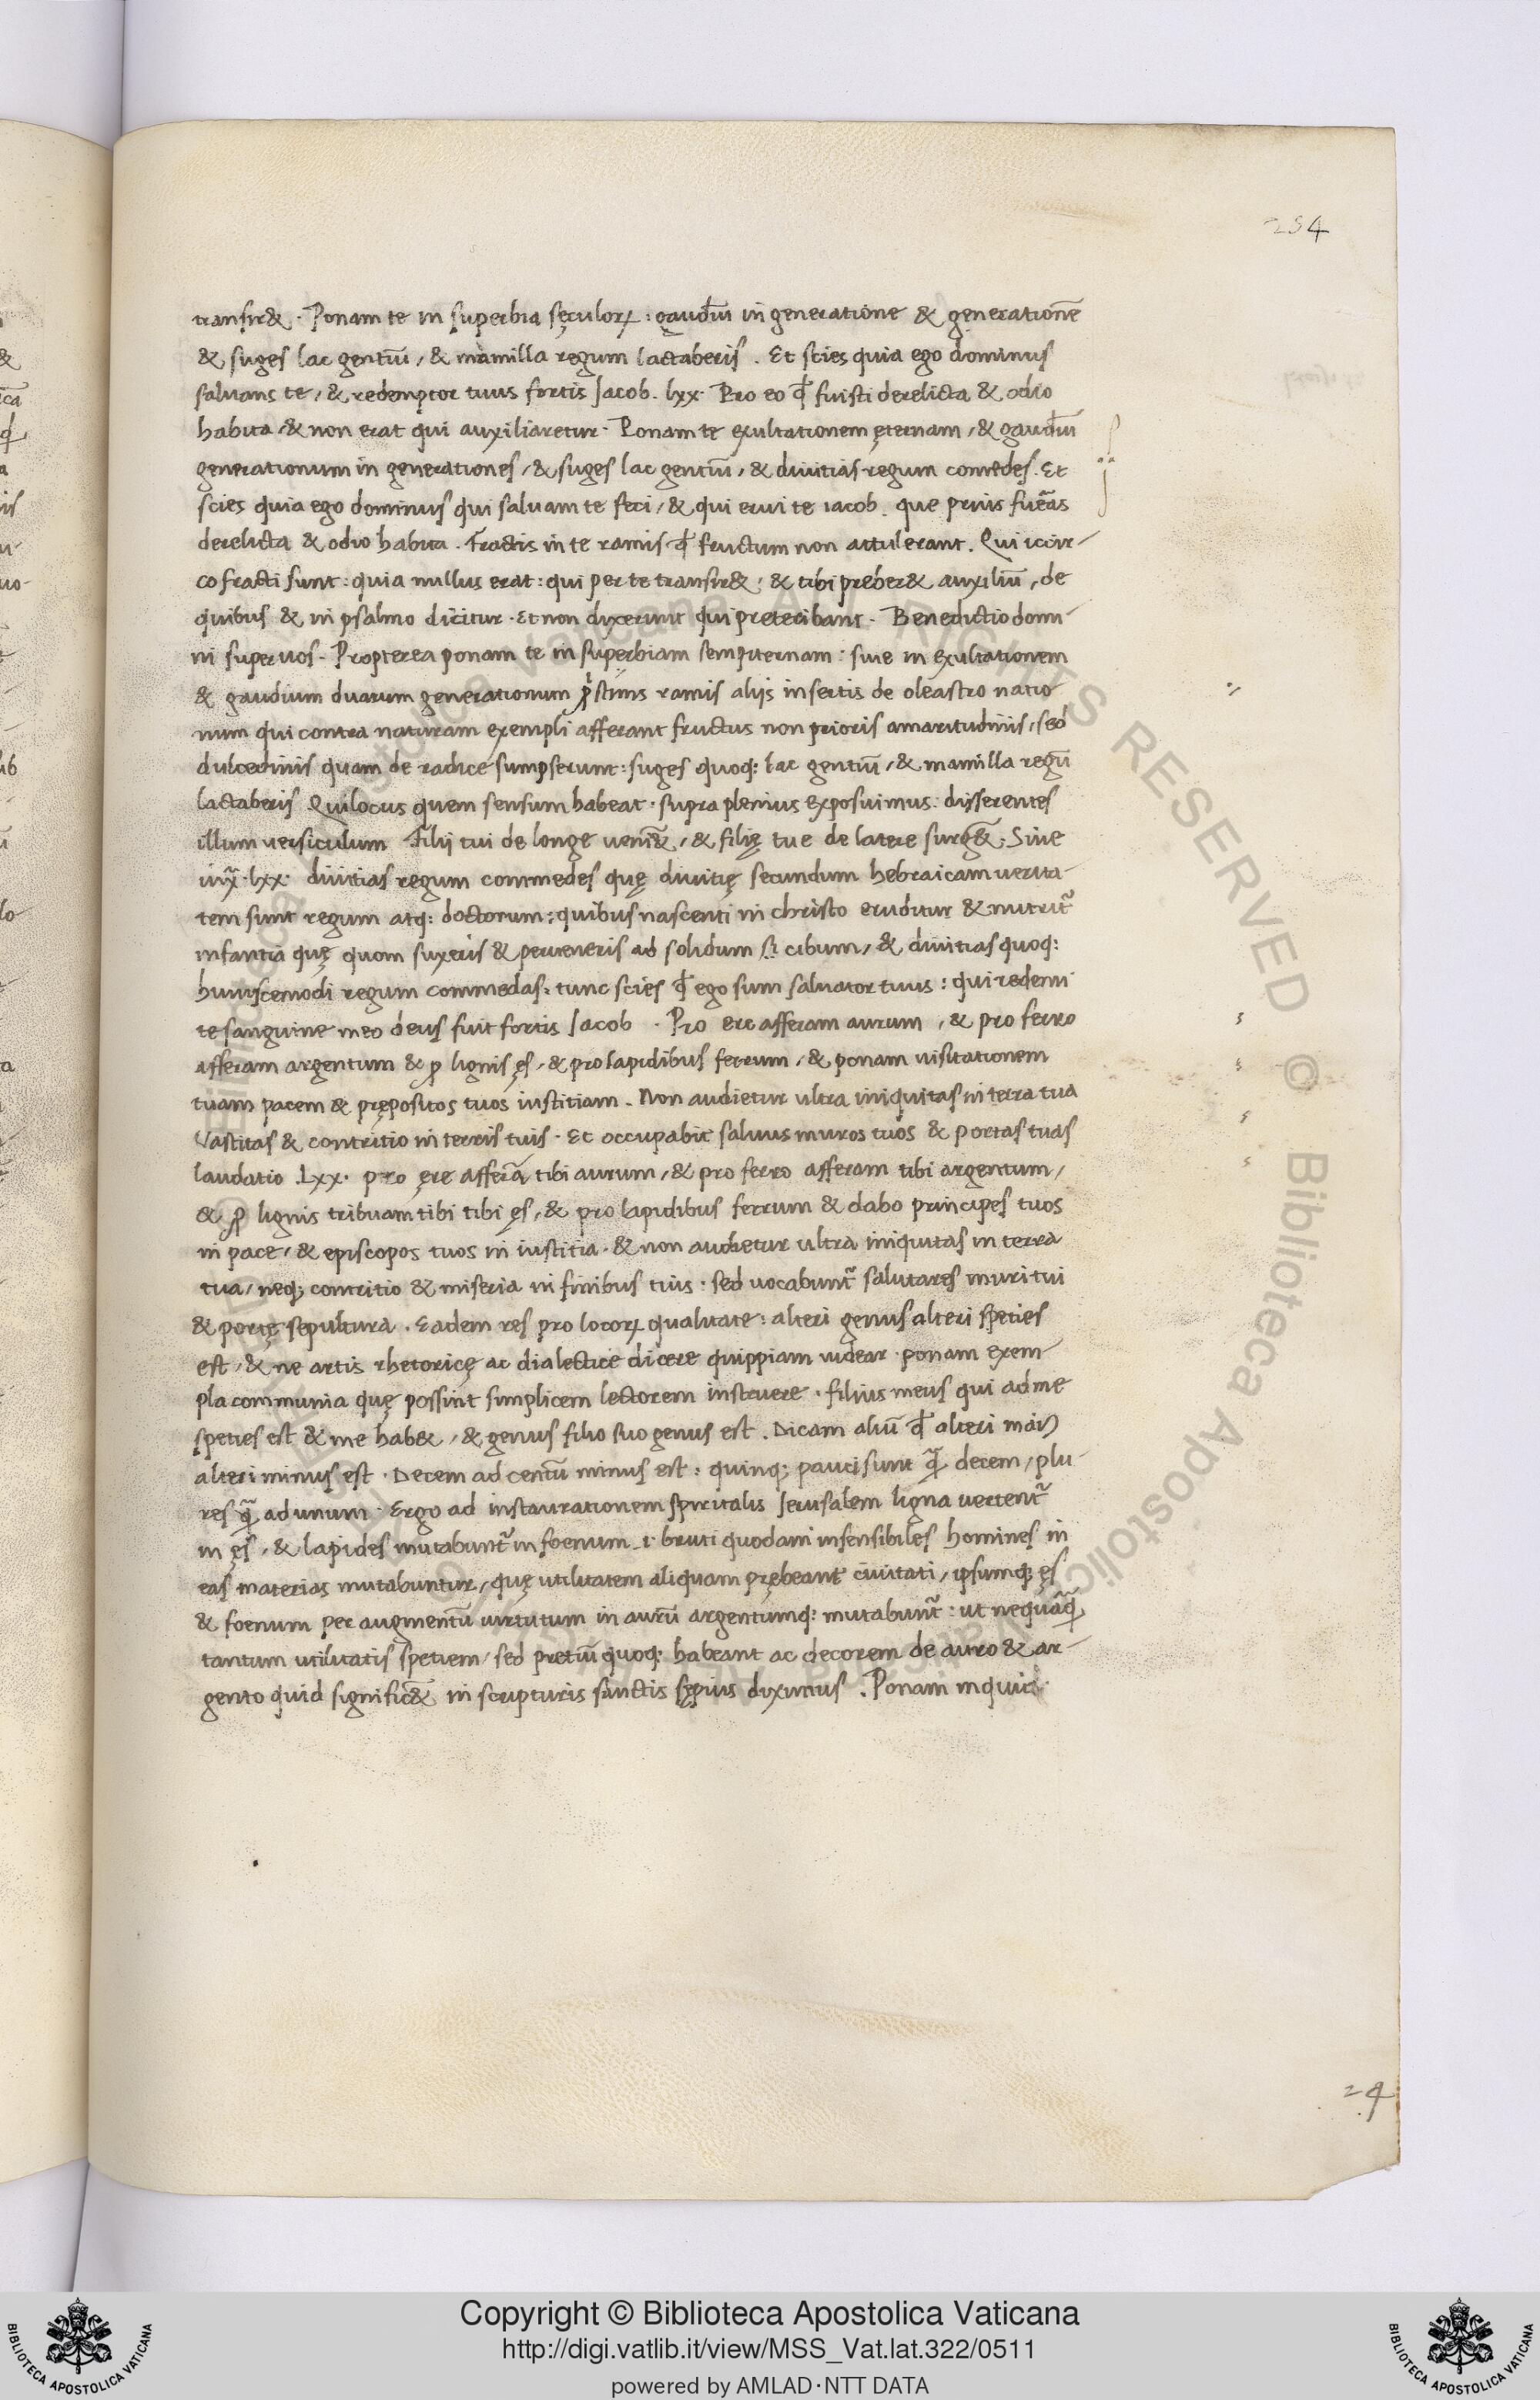 254
transir&. Ponam te in superbia sęculoꝝ: gaudiū in generatione & generationē
& suges lac gentiū, & mamilla regum lactaberis. Et scies quia ego dominus
saluans te, & redemptor tuus fortis Jacob. lxx. Pro eo ꝙ fuisti derelicta & odio
habita, & non erat qui auxiliaretur. Ponam te exultationem ęternam, & gaudiū
generationum in generationes, & suges lac gentiū, & diuitias regum comedes. Et
scies quia ego dominus qui saluam te feci, & qui erui te iacob. que prius fuēas
derelicta & odio habita. Fractis in te ramis ꝙ fructum non attulerant. Qui iccir-
co fracti sunt: quia nullus erat: qui per te transir&, & tibi preber& auxiliū, de
quibus & in psalmo dicitur. Et non dixerunt qui preteribant. Benedictio domi-
ni super uos. Propterea ponam te in superbiam sempiternam: siue in exultationem
& gaudium duarum generationum pͥstinis ramis alijs insertis de oleastro natio-
num qui contra naturam exempli afferant fructus non prioris amaritudinis, sed
dulcedinis quam de radice sumpserunt: suges quoq: lac gentiū, & mamilla regū
lactaberis Qui locus quem sensum habeat. supra plenius exposuimus: disserentes
illum uersiculum Filij tui de longe ueni&̄, & filię tue de latere surg&̄. Siue
lxx. diuitias regum commedes quę diuitię secundum hebraicam uerita-
tem sunt regum atq: doctorum: quibus nascenti in christo eruditur & nutrit᷑
infantia quę quom suxeris & perueneris ad solidum cibum, & diuitias quoq:
huiuscemodi regum commedas: tunc scies ꝙ ego sum saluator tuus: qui redemi
te sanguine meo deus fuit fortis Jacob. Pro ere afferam aurum, & pro ferro
afferam argentum & ꝓ lignis ęs, & pro lapidibus ferrum, & ponam uisitationem
tuam pacem & prępositos tuos iustitiam. Non audietur ultra iniquitas in terra tua
Vastitas & contritio in terris tuis. Et occupabit salius muros tuos & portas tuas
laudatio. Lxx. pro ęre afferā tibi aurum, & pro ferro afferam tibi argentum,
& ꝓ lignis tribuam tibi tibi ęs, & pro lapidibus ferrum & dabo principes tuos
in pace, & episcopos tuos in iustitia. & non audietur ultra iniquitas in terra
tua, neq; contritio & miseria in finibus tuis. sed uocabunt᷑ salutares muri tui
& portę sepultura. Eadem res pro locoꝝ qualitate: alteri genus alteri speties
est, & ne artis rhetoricę ac dialectice dicere quippiam uidear. ponam exem-
pla communia quę possint simplicem lectorem instruere. filius meus qui ad me
speties est & me hab&, & genus filio suo genus est. Dicam aliū ꝙ alteri maiꝰ
alteri minus est. Decem ad centū minus est: quinq; pauci sunt ꝗ̃ decem, plu-
res ꝗ̃ ad unum. Ergo ad instaurationem spiritalis Jerusalem ligna uertent᷑
in ęs, & lapides mutabunt᷑ in foenum .i. bruti quodam insensibiles homines in
eas materias mutabuntur, quę utilitatem aliquam prębeant ciuitati, ipsumq; ęs
& foenum per augmentū uirtutum in aurū argentumq: mutabunt᷑: ut nequāꝗ̃
tantum utilitatis spetiem, sed pretiū quoq: habeant ac decorem de auro & ar-
gento quid signific&̄ in scripturis sanctis sępius diximus. Ponam inquit
24
Copyright © Biblioteca Apostolica Vaticana
http://digi.vatlib.it/view/MSS_Vat.lat.322/0511
powered by AMLAD·NTT DATA
BIBLIOTECA APOSTOLICA VATICANA
BIBLIOTECA APOSTOLICA VATICANA